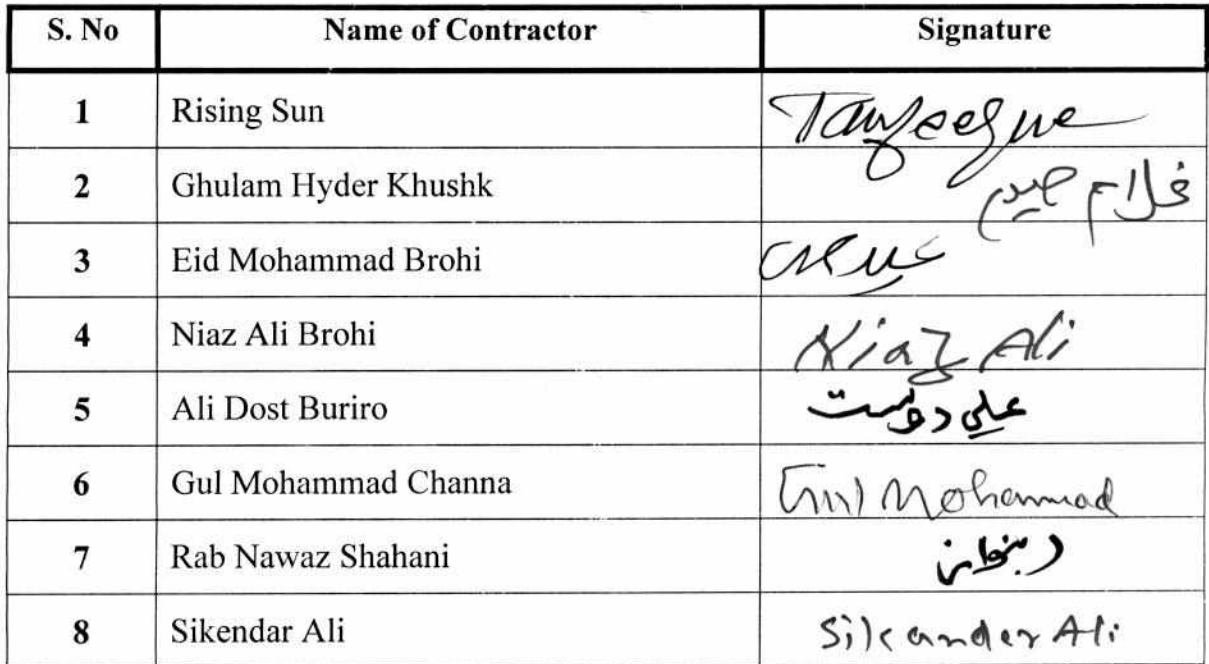 S. No Name of Contractor Signature
1 Rising Sun
2 Ghulam Hyder Khushk غلام حيدر
3 Eid Mohammad Brohi
4 Niaz Ali Brohi Niaz Ali
5 Ali Dost Buriro علي دوست
6 Gul Mohammad Channa Gul Mohammad
7 Rab Nawaz Shahani ربنواز
8 Sikendar Ali Sikander Ali